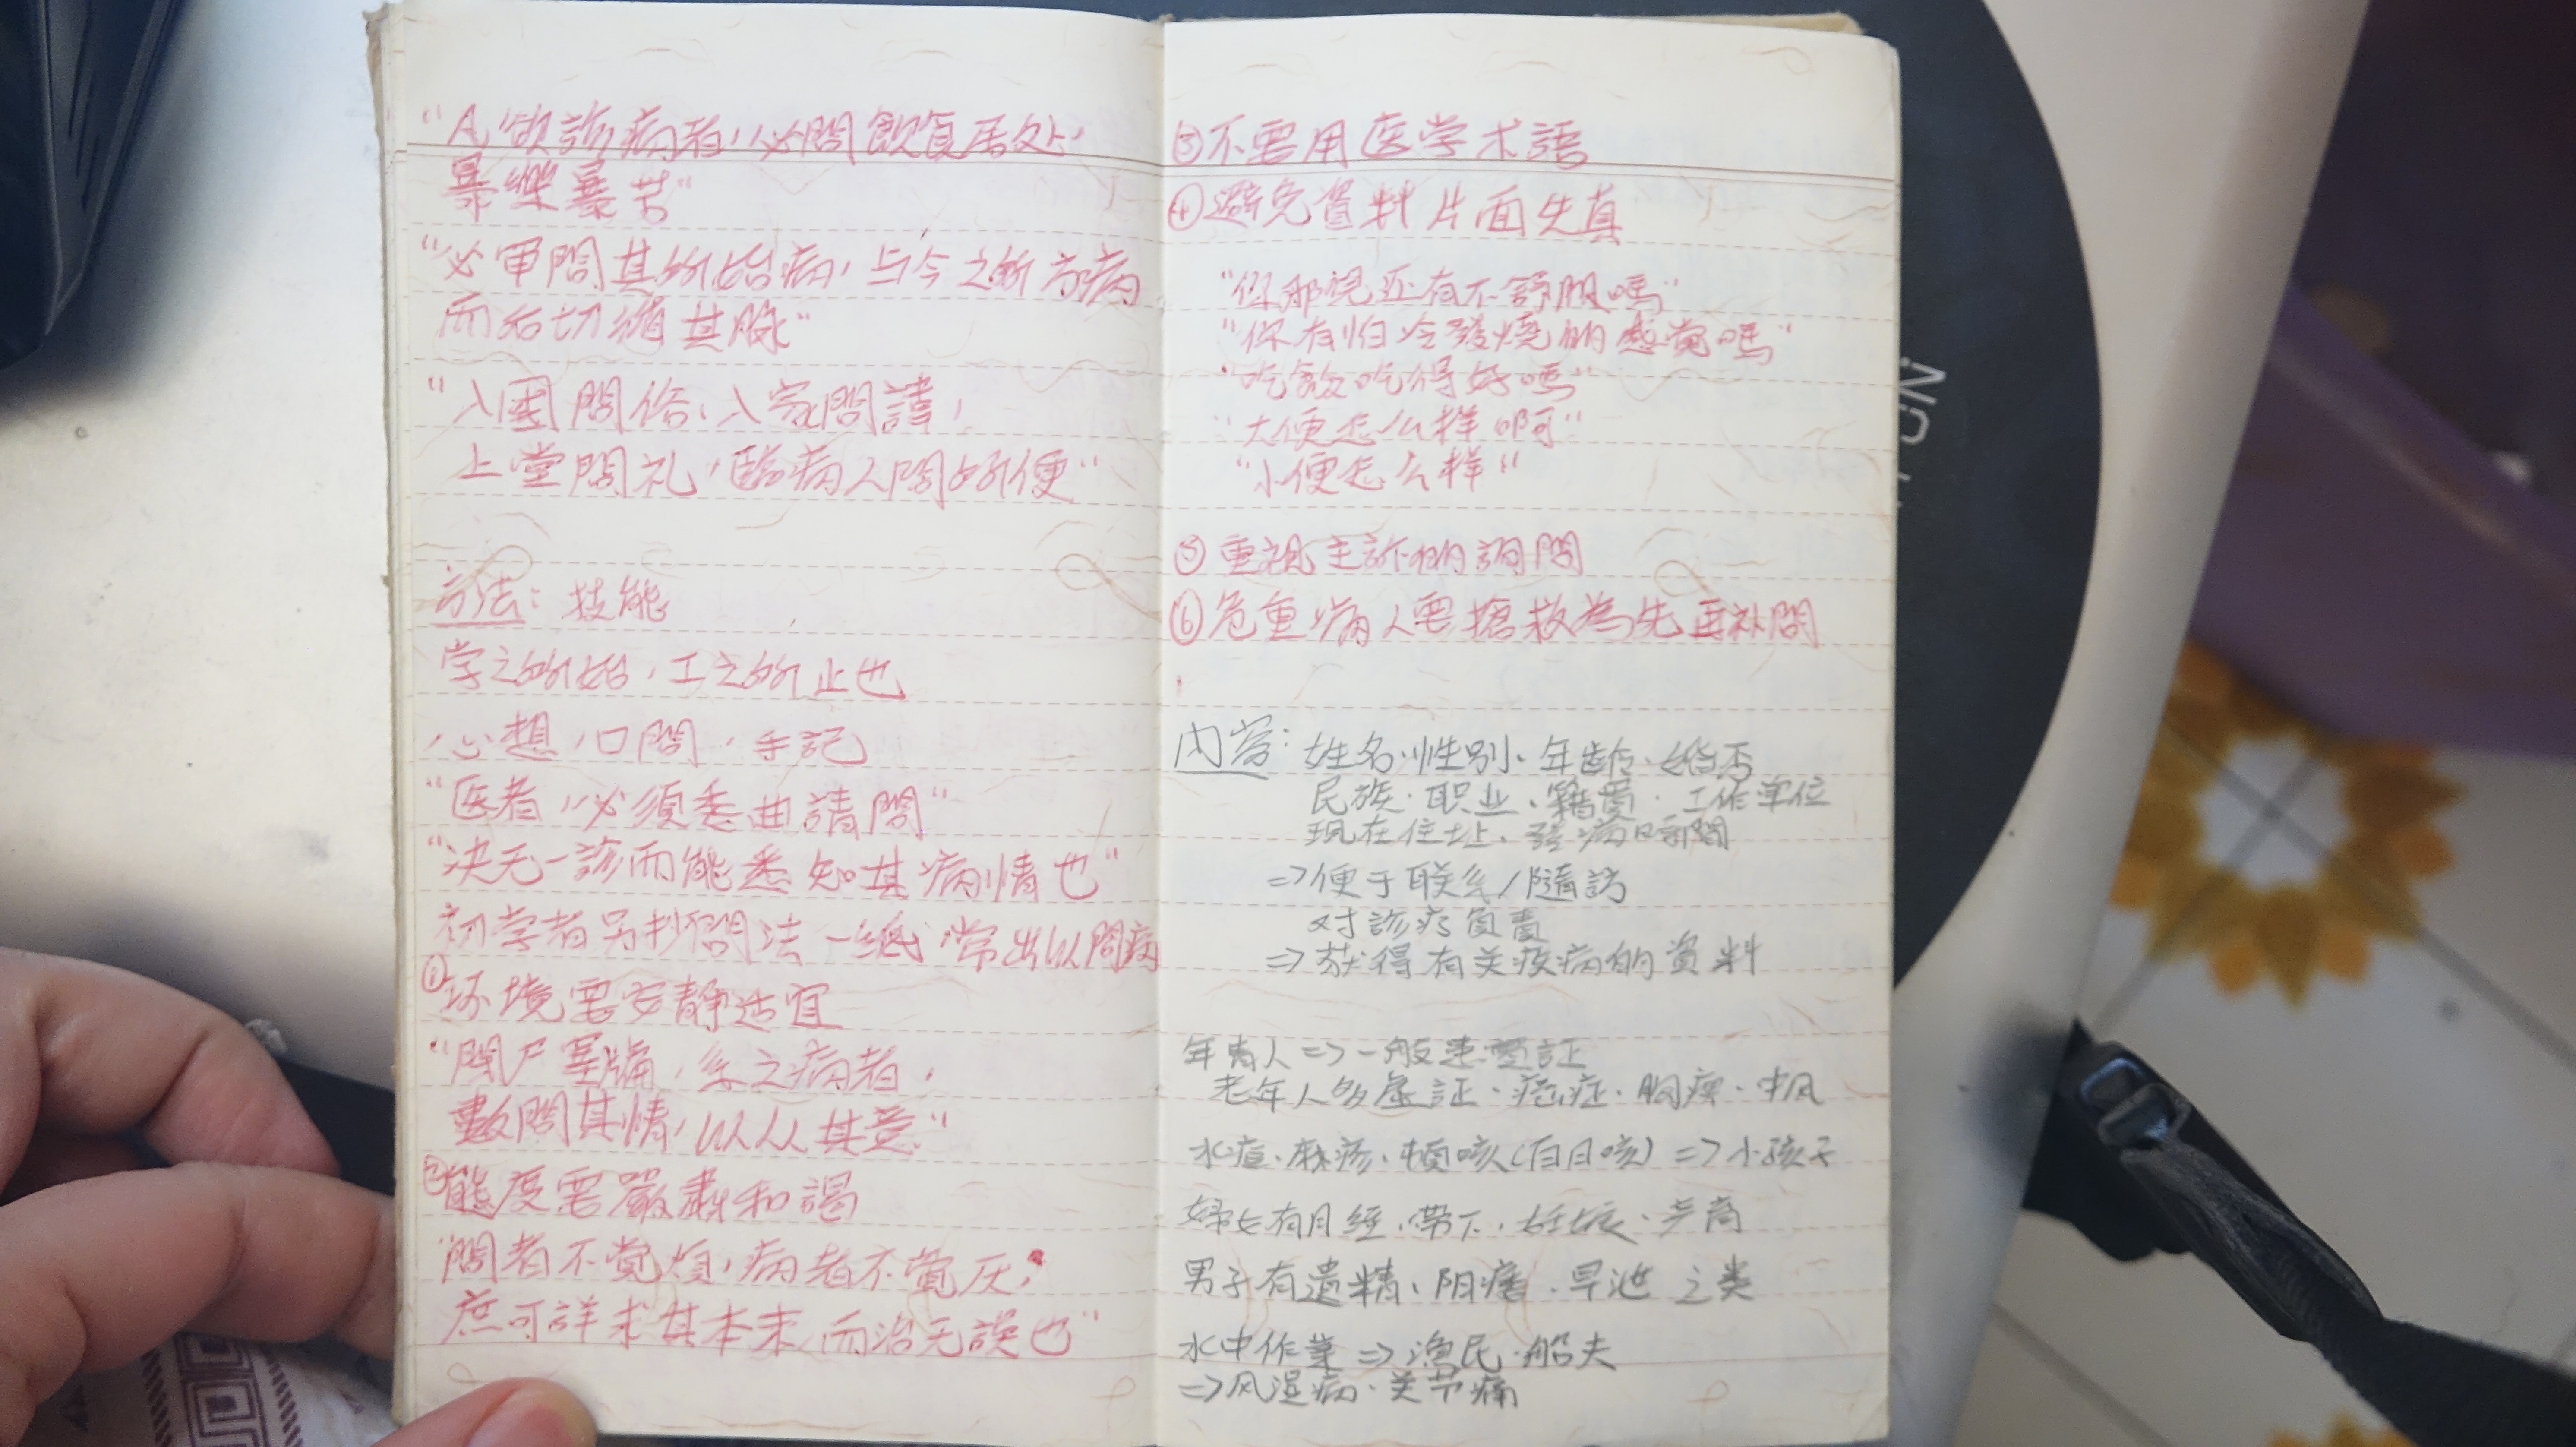 "凡欲診病者,必問飲食居处,
暴樂暴苦"
"必审問其所始病,与今之所方病
而后切循其脉"
"入國問俗,入家問諱,
上堂問礼,臨病人問所便"
方法:技能
学之所始,工之所止也
心想,口問,手記
"医者,必須委曲請問"
"决无一診而能悉知其病情也"
初学者另抄問法一纸,常出以問病
①环境要安静适宜
"閉户塞牖,系之病者,
數問其情,以从其意"
②態度要嚴肅和謁
"問者不觉煩,病者不觉厌,
庶可詳求其本末,而治无誤也"
③不要用医学术語
④避免資料片面失真
"你那說还有不舒服嗎"
"你有怕冷發燒的感觉嗎"
"吃飯吃得好嗎"
"大便怎么样啊"
"小便怎么样"
⑤重視主訴的詢問
⑥危重病人要搶救為先再补問
内容:姓名、性别、年齡、婚否
民族、职业、籍貫、工作单位
現在住址、發病時間
=>便于联系/隨訪
对診疗負責
=>获得有关疫病的資料
年青人=>一般患實証
老年人多虚証、癌症、胸痹、中风
水痘、麻疹、頓咳(百日咳)=>小孩子
婦女有月經、帶下、妊娠、产育
男子有遺精、阴痿、早泄之类
水中作業=>漁民、船夫
=>风湿病、关节痛
NO